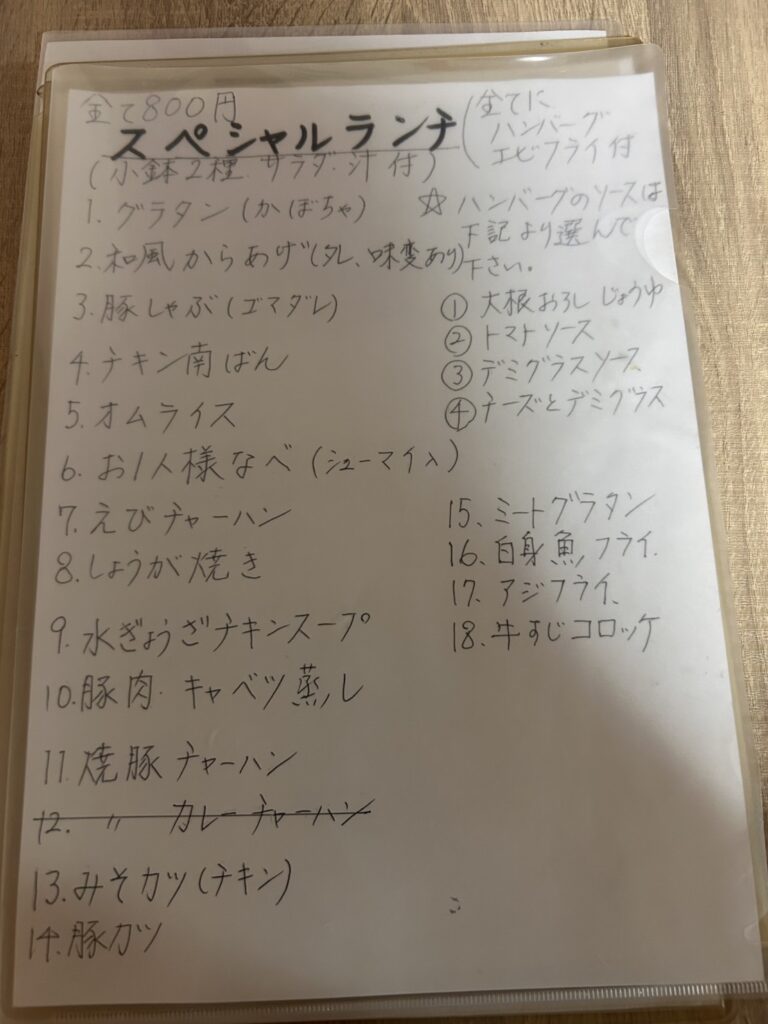 全て800円
スペシャルランチ
(小鉢2種.サラダ.汁付)
(全てに
ハンバーグ
エビフライ付
1. グラタン(かぼちゃ)
2.和風からあげ(タレ、味変あり)
3.豚しゃぶ(ゴマダレ)
4.チキン南ばん
5.オムライス
6.お1人様なべ(シューマイ入)
7.えびチャーハン
8.しょうが焼き
9.水ぎょうざチキンスープ
10.豚肉.キャベツ蒸し
11.焼豚チャーハン
12. 〃 カレーチャーハン
13.みそカツ(チキン)
14.豚カツ
☆ハンバーグのソースは
下記より選んで
下さい。
① 大根おろしじょうゆ
② トマトソース
③ デミグラスソース
④ チーズとデミグラス
15、ミートグラタン
16、白身魚フライ.
17、アジフライ、
18、牛すじコロッケ